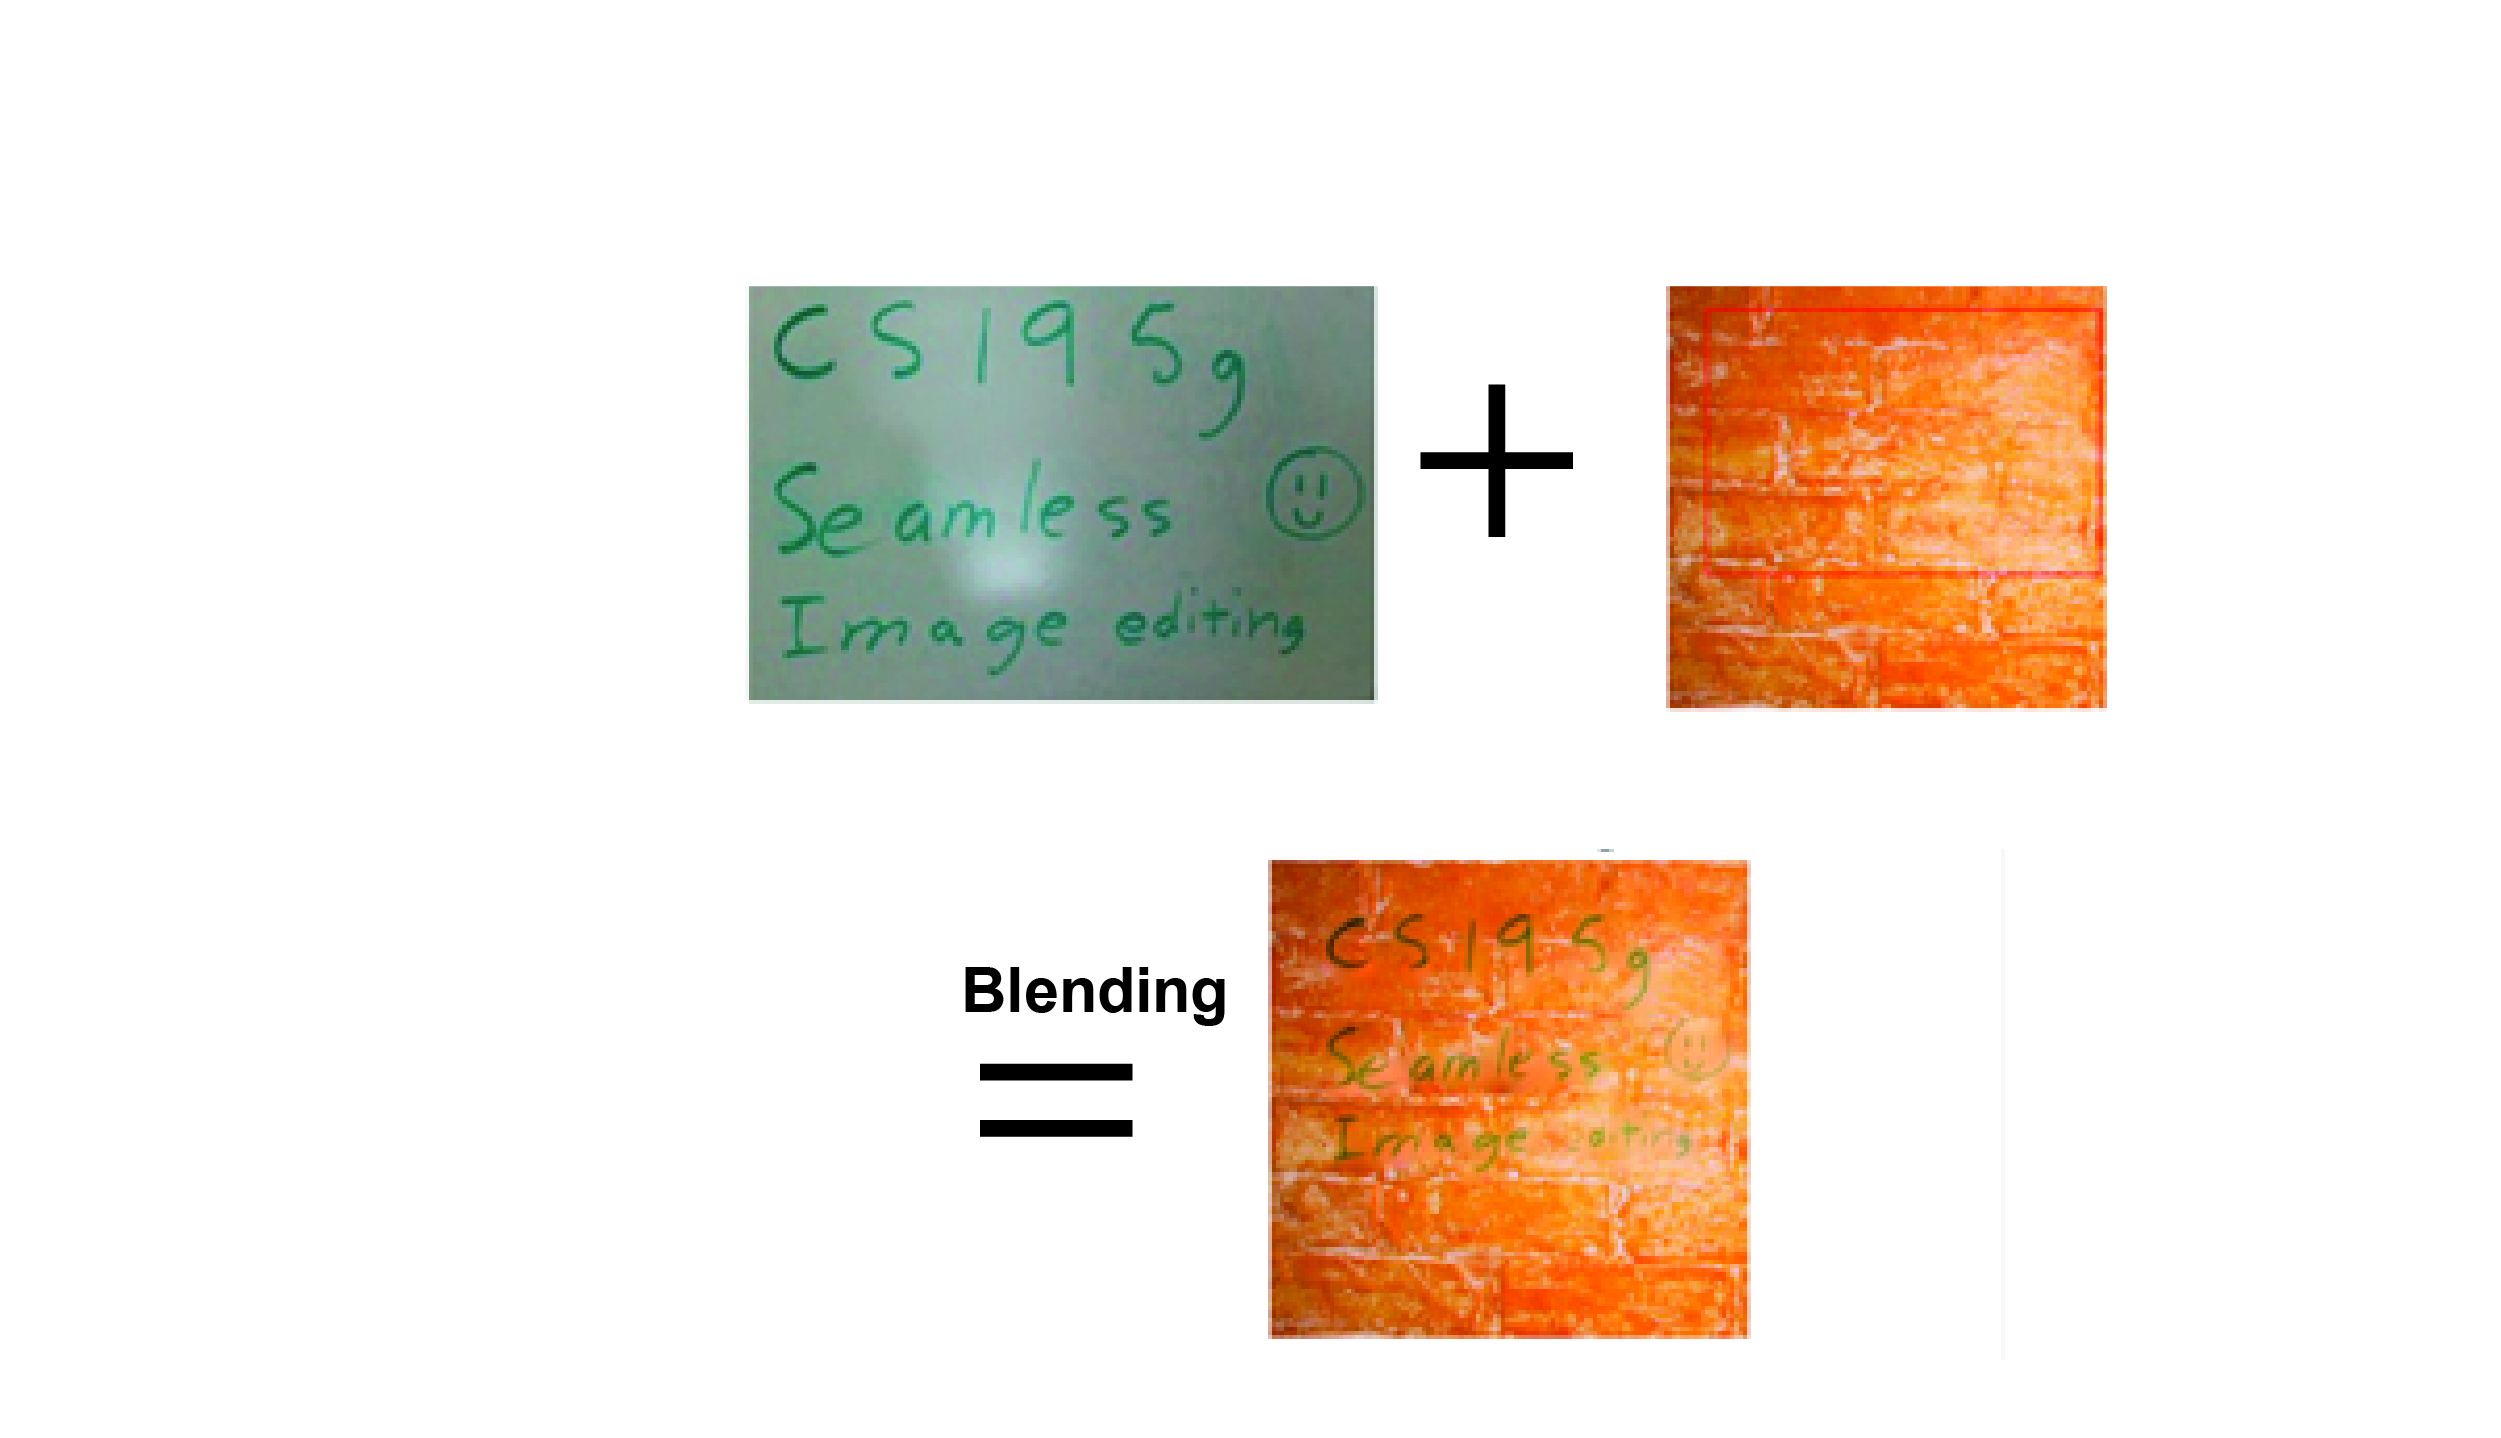 CS195g
Seamless
Image editing
Blending
CS195g
Seamless
Image editing